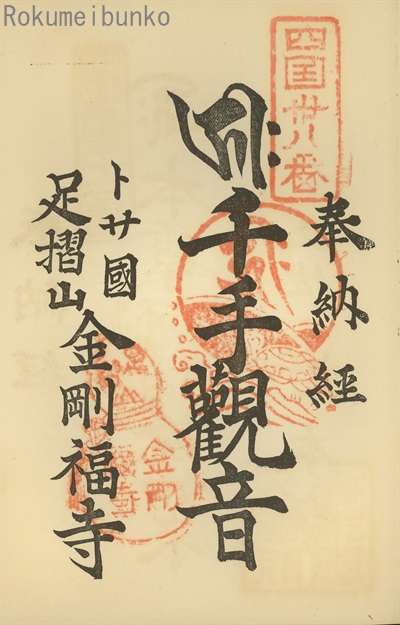 Rokumeibunko
四国卅八番
奉納経
千手觀音
トサ國
足摺山金剛福寺
金剛